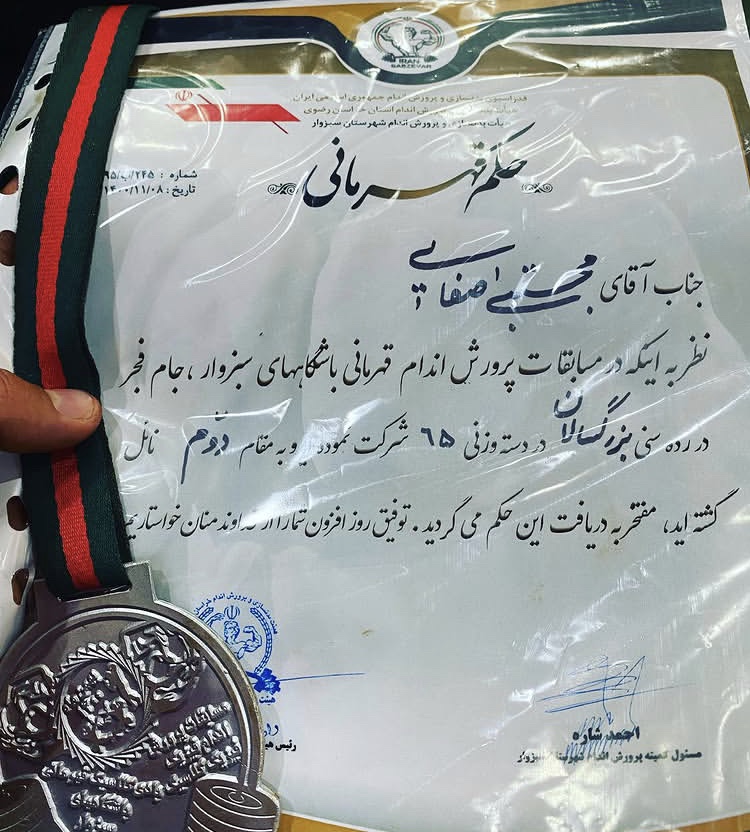 IRAN
SABZEVAR
فدراسیون بدنسازی و پرورش اندام جمهوری اسلامی ایران
هیأت بدنسازی و پرورش اندام استان خراسان رضوی
هیأت بدنسازی و پرورش اندام شهرستان سبزوار
حکم قهرمانی
شماره : ۲۴۵/ب/۹۵
تاریخ : ۱۴۰۰/۱۱/۰۸
جناب آقای مجتبی صفایی
نظر به اینکه در مسابقات پرورش اندام قهرمانی باشگاههای سبزوار ، جام فجر
در رده سنی بزرگسالان در دسته وزنی ۶۵ شرکت نموده و به مقام دوم نائل
گشته اید، مفتخر به دریافت این حکم می گردید . توفیق روز افزون شما را از خداوند منان خواستاریم
احمد شاره
مسئول کمیته پرورش اندام شهرستان سبزوار
رئیس
مسابقات پرورش
اندام
باشگاههای
سبزوار